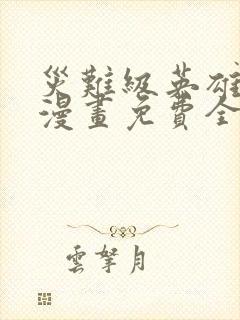 災難級英雄
漫畫免費全
雲拏月